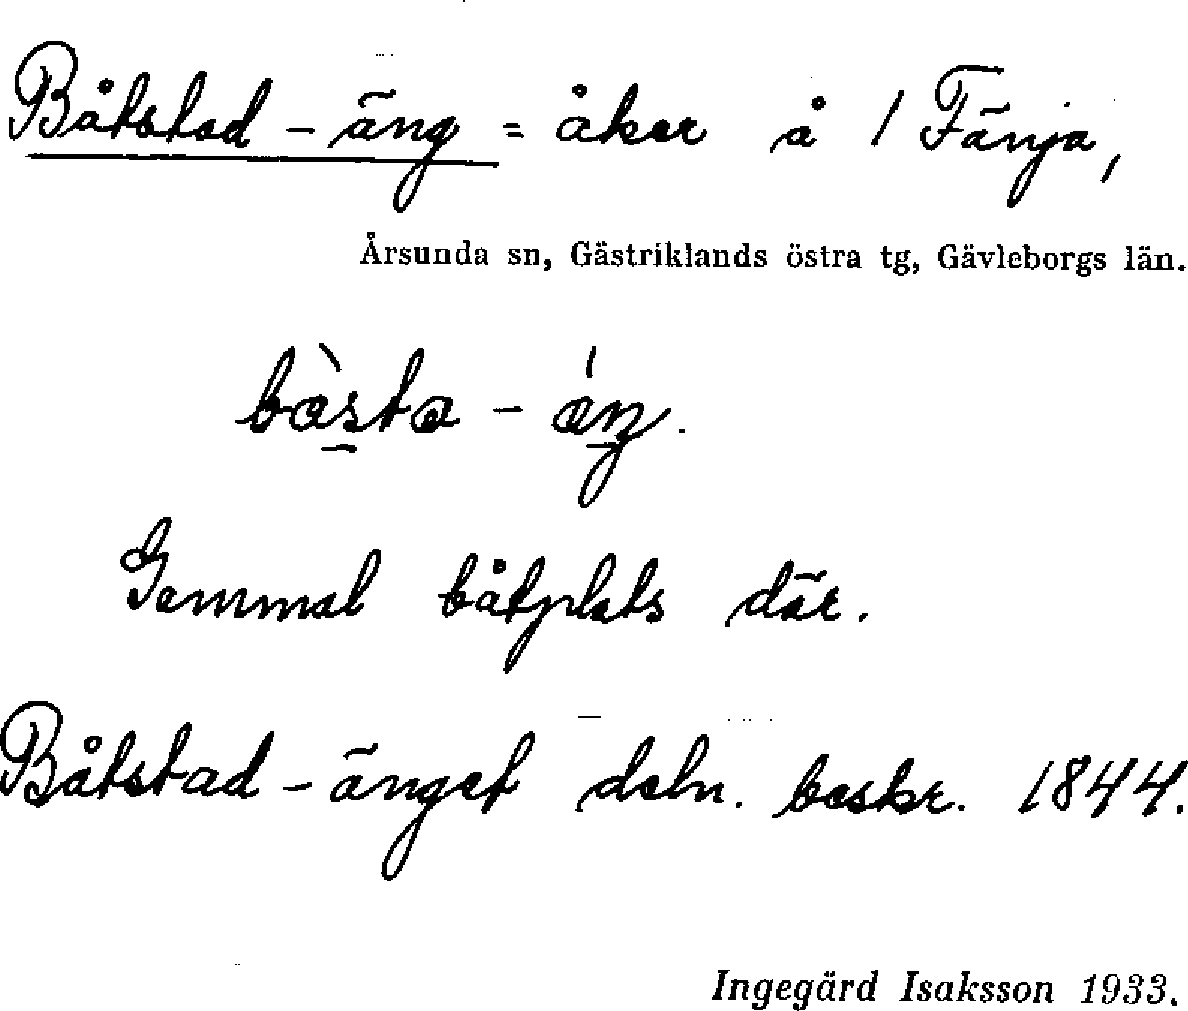 Båtstad-äng = åker å 1 Fänja,
Årsunda sn, Gästriklands östra tg, Gävleborgs län.
Gammal båtplats där.
Båtstad-änget deln. beskr. 1844.
Ingegärd Isaksson 1933.